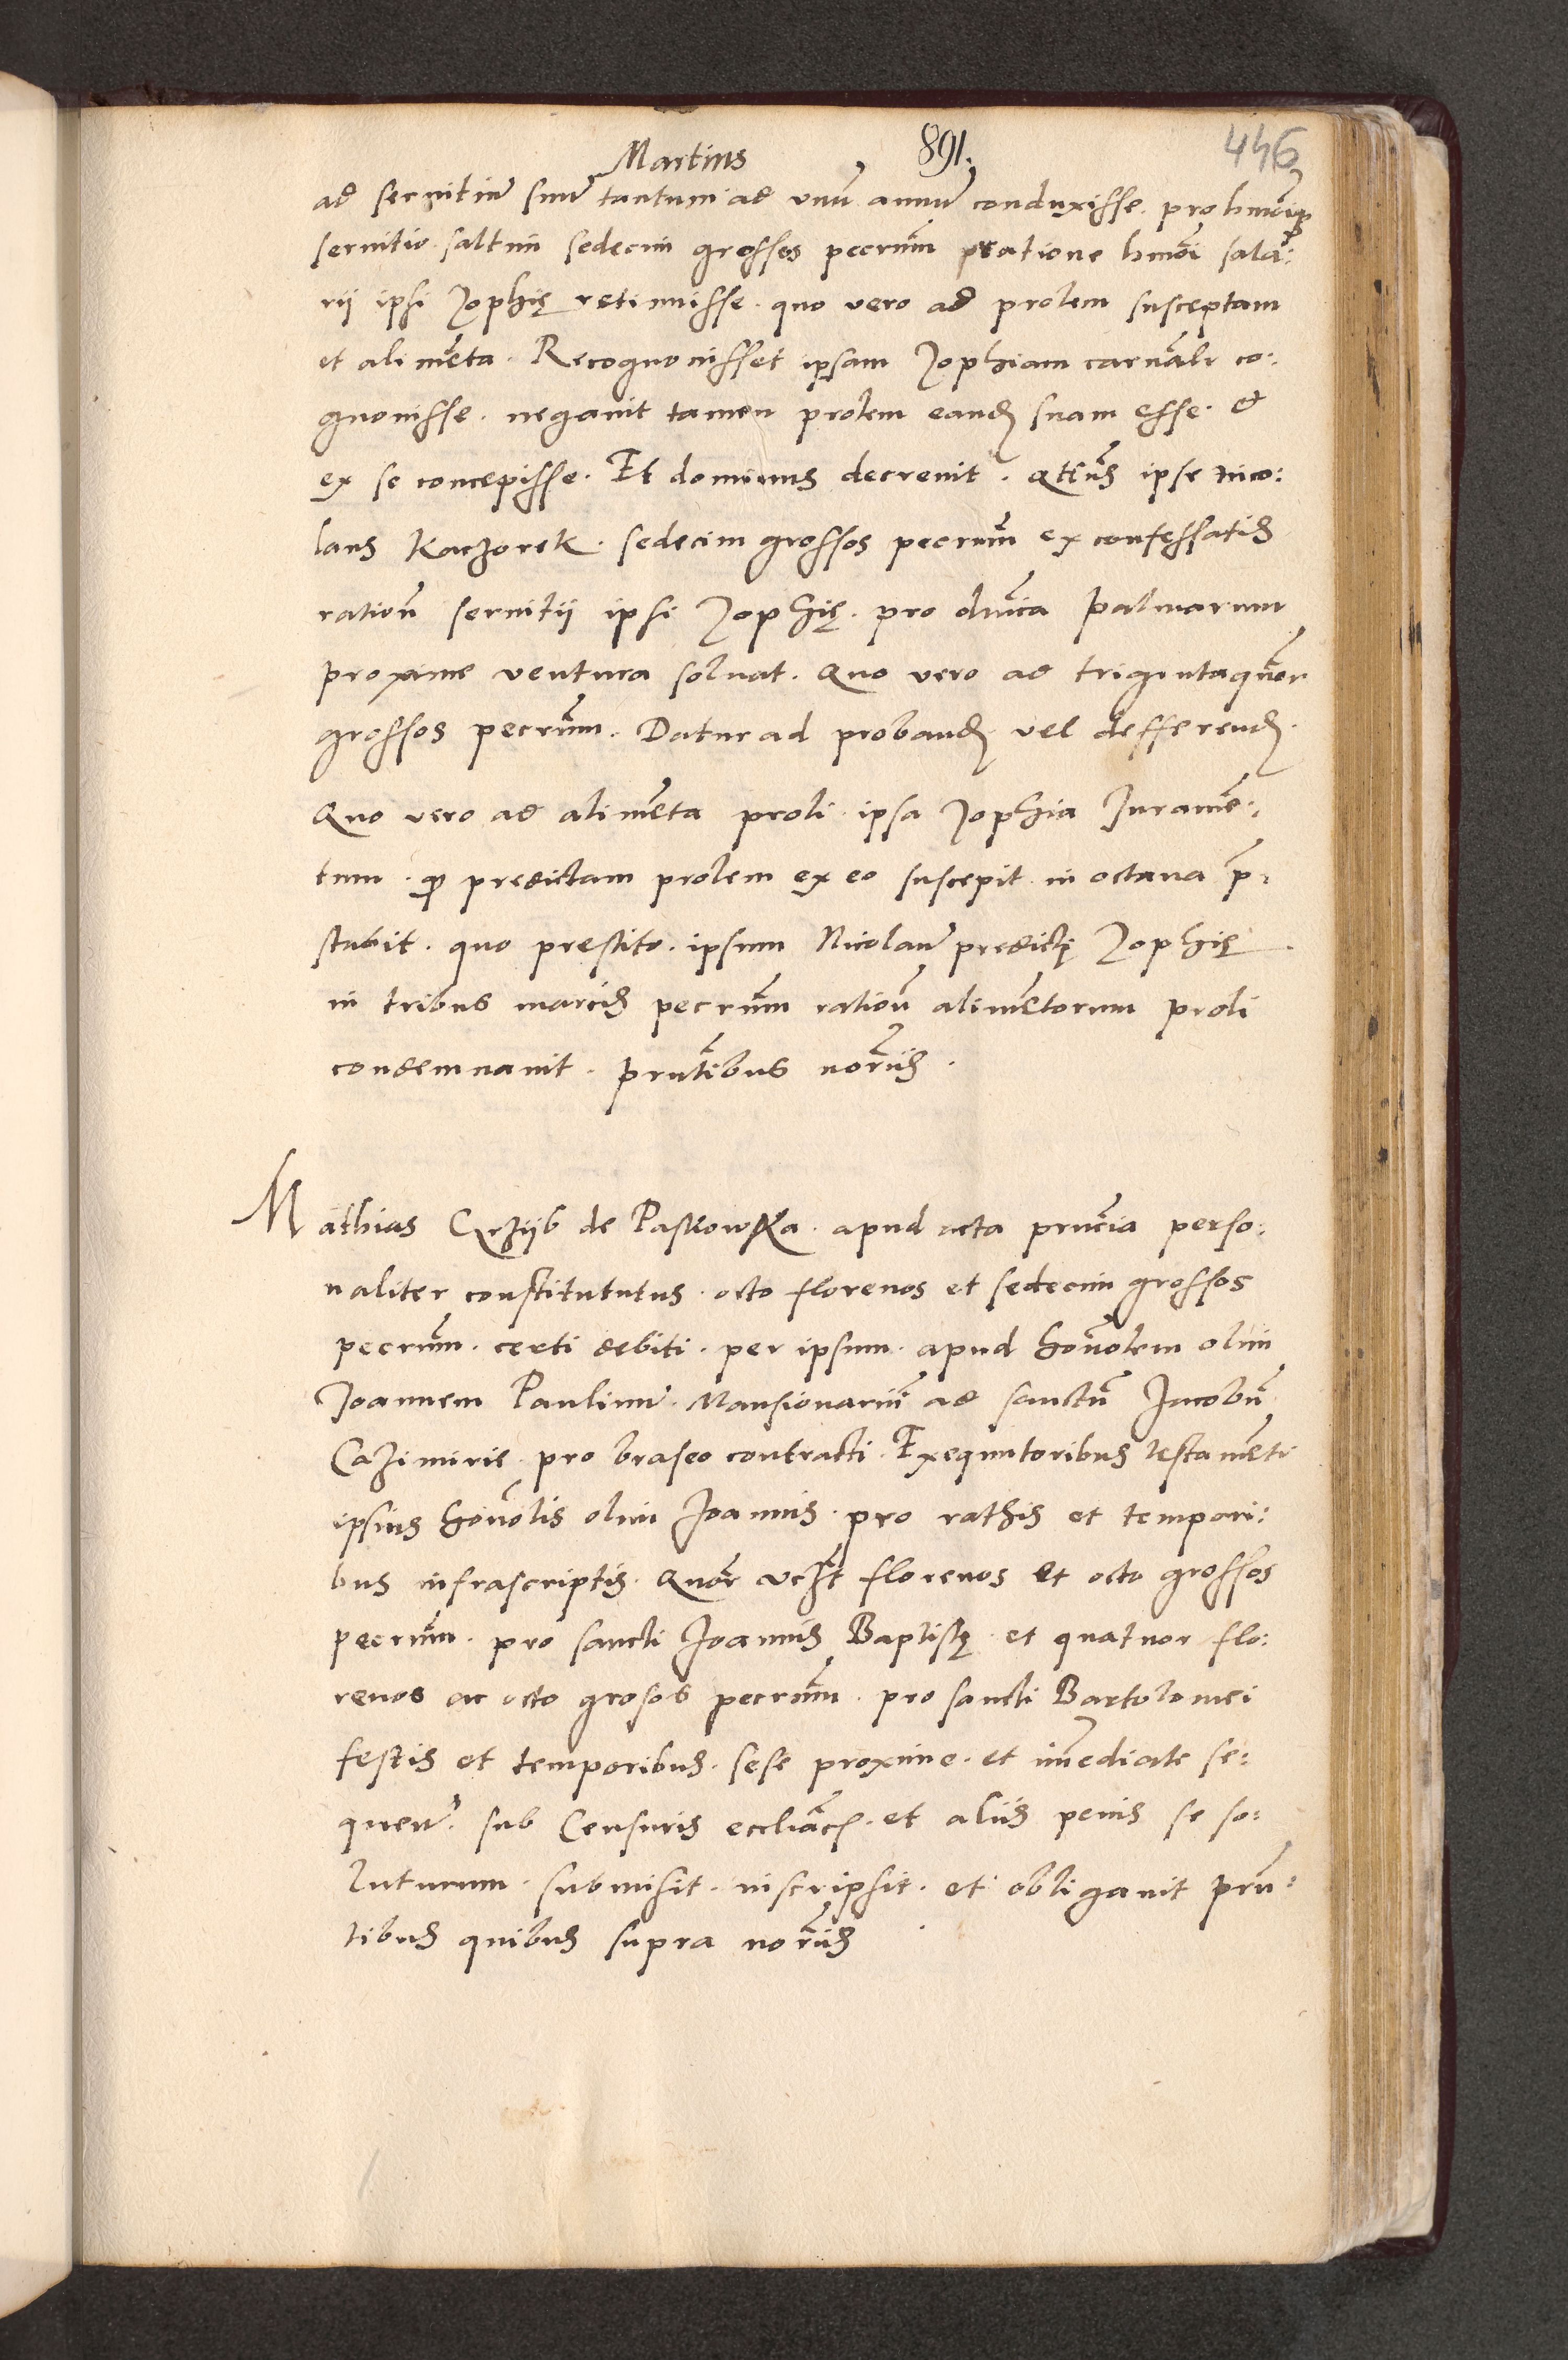 Martius 891. 446
ad seruitiū suū tantum ad vnū annū conduxisse. pro hmōiqȝ
seruitio. saltim sedecim grossos pecrum̄ ratione hmōi sala:
rii ipsi Zophię retinuisse. quo vero ad prolem susceptam
et alimēta. Recognouisset ipsam Zophiam carnalr co:
gnouisse. negauit tamen prolem eand. suam esse. et
ex se concepisse. Et dominus decreuit. qtn̄s ipse Nico:
laus Kaczorek. sedecim grossos pecrum̄ ex confessatis
ration̄ seruitii ipsi Zophię. pro dn̄ica Palmarum
proxime ventura soluat. Quo vero ad trigintaquor̄
grossos pecrum̄. Datur ad proband. vel defferend.
Quo vero ad alimēta proli. ipsa Zophia Juramē:
tum. qȝ predictam prolem ex eo suscepit in octaua p̄:
stabit. quo prestito. ipsum Nicolaū predictę Zophię.
in tribus marcis pecrum̄ ration̄ alimētorum proli
condemnauit. prn̄tibus nor̄iis.
Mathias Grziib de Paskowka. apud acta prn̄cia perso:
naliter constitututus. octo florenos et sedecim grossos
pecrum̄. certi debiti. per ipsum. apud hon̄olem olim
Joannem Paulinū. Mansionariū ad sanctū Jacobū
Cazimirie. pro braseo contracti. Exequutoribus testamēti
ipsius hon̄olis olim Joannis. pro rathis et tempori:
bus infrascriptis. Quor̄ vcȝt florenos et octo grossos
pecrum̄. pro sancti Joannis Baptistę. et quatuor flo:
renos ac octo grosos pecrum̄. pro sancti Bartolomei
festis et temporibus. sese proxime. et im̄ediate se:
quen̄. sub Censuris eccliāc. et aliis penis se so:
luturum. submisit. inscripsit. et obligauit prn̄:
tibus quibus supra nor̄iis